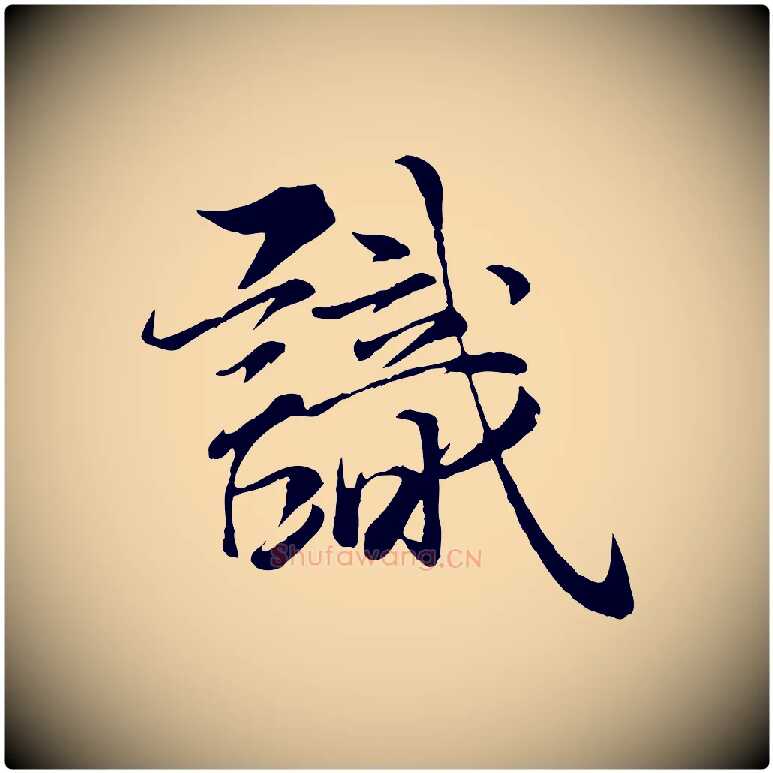 識
Shufawang.CN